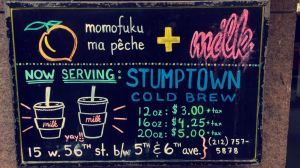 momofuku
ma pêche + milk
NOW SERVING: STUMPTOWN
COLD BREW
12oz: $3.00 + tax
16oz: $4.25 + tax
20oz: $5.00 + tax
milk
milk
yay!!
15 w. 56TH st. b/w 5TH & 6TH ave. (212) 757-
5878